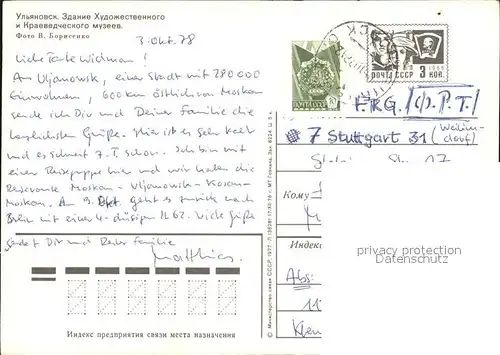 Ульяновск. Здание Художественного
и Краеведческого музеев.
Фото В. Борисенко
3. Okt. 78
Liebe Tante Widman!
Am Uljanowsk, einer Stadt mit 280000
Einwohnern, 600 km östlich von Moskau
sende ich Dir und Deiner Familie die
herzlichsten Grüße. Hier ist es sehr kalt
und es schneit z. T. schon. Ich bin mit
einer Reisegruppe hier und wir haben die
Reiseroute Moskau - Uljanowsk - Kasan-
Moskau. Am 9. Okt. geht es zurück nach
Berlin mit einer 4-düsigen IL 62. Viele Grüße
sendet Dir und Deiner Familie
Matthias
Индекс предприятия связи места назначения
ПОЧТА СССР 3 КОП.
F.R.G. (P.T.)
7 Stuttgart 31 (Weilim-
dorf)
17
Кому
Индекс
Abs.
privacy protection
privacy protection
© Министерство связи СССР. 1977